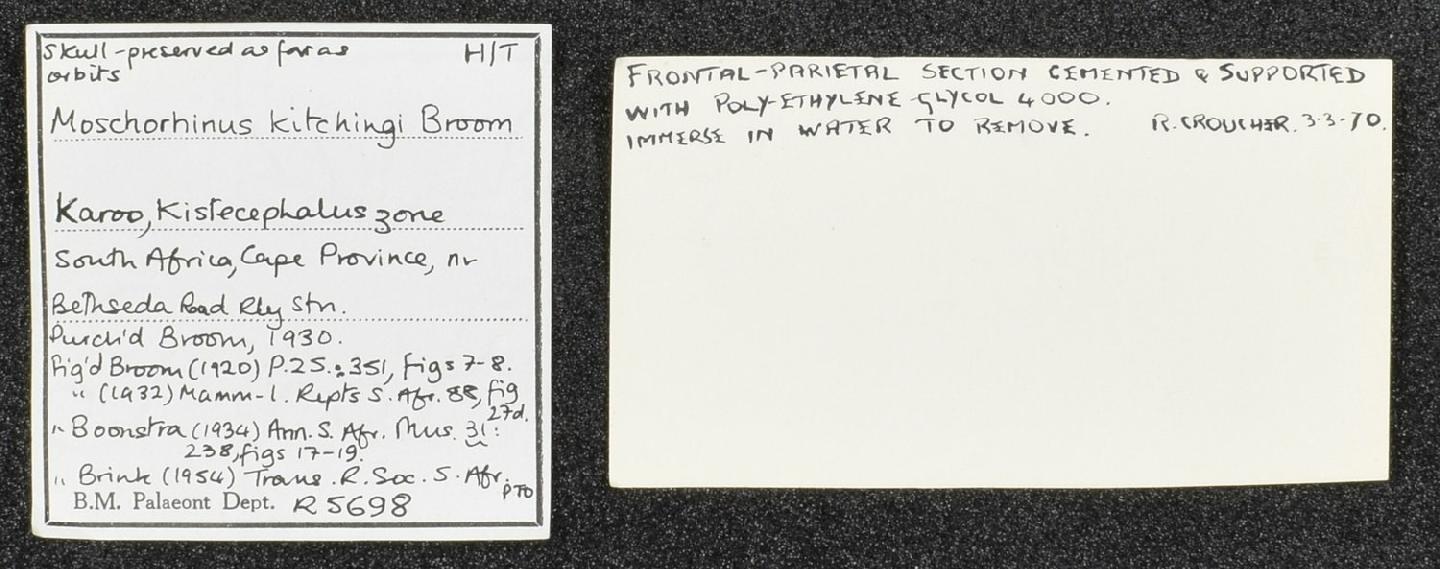 Skull-preserved as far as H/T
orbits
Moschorhinus kitchingi Broom
Karoo, Kistecephalus zone
South Africa, Cape Province, nr
Bethseda Road Rly Stn.
Purch'd Broom, 1930.
Fig'd Broom (1920) P.Z.S.: 351, figs 7-8.
" (1932) Mamm-l. Repts S. Afr. 88, fig
27d.
" Boonstra (1934) Ann. S. Afr. Mus. 31:
238, figs 17-19.
" Brink (1954) Trans. R. Soc. S. Afr.
PTO
B.M. Palaeont Dept. R 5698
FRONTAL-PARIETAL SECTION CEMENTED & SUPPORTED
WITH POLY-ETHYLENE-GLYCOL 4000.
IMMERSE IN WATER TO REMOVE. R. CROUCHER. 3-3-70.